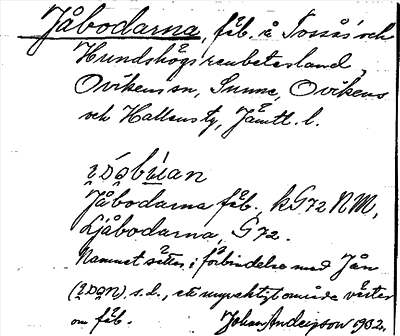 Jåbodarna, fäb. å Tossås' och
Hundshögs renbetesland,
Ovikens sn, Sunne, Ovikens
och Hallens tg, Jämtl. l.
Jåbodarna fäb. kG72 NM,
Ljåbodarna, G72.
Namnet sättes i förbindelse med Jån
s. d., ett myraktigt område väster
om fäb. Johan Anderson 1902.